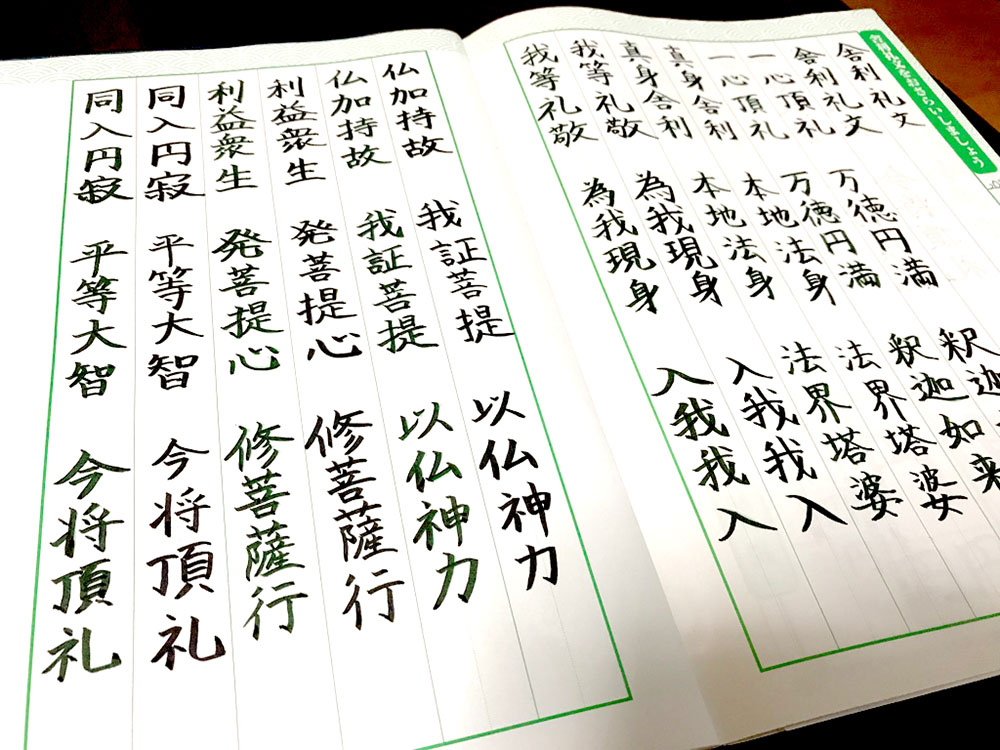 舎利礼文をおさらいしましょう
舎利礼文
舎利礼文
一心頂礼 万徳円満 釈迦
一心頂礼 万徳円満 釈迦如来
真身舎利 本地法身 法界塔婆
真身舎利 本地法身 法界塔婆
我等礼敬 為我現身 入我我入
我等礼敬 為我現身 入我我入
仏加持故 我証菩提 以仏神力
仏加持故 我証菩提 以仏神力
利益衆生 発菩提心 修菩薩行
利益衆生 発菩提心 修菩薩行
同入円寂 平等大智 今将頂礼
同入円寂 平等大智 今将頂礼